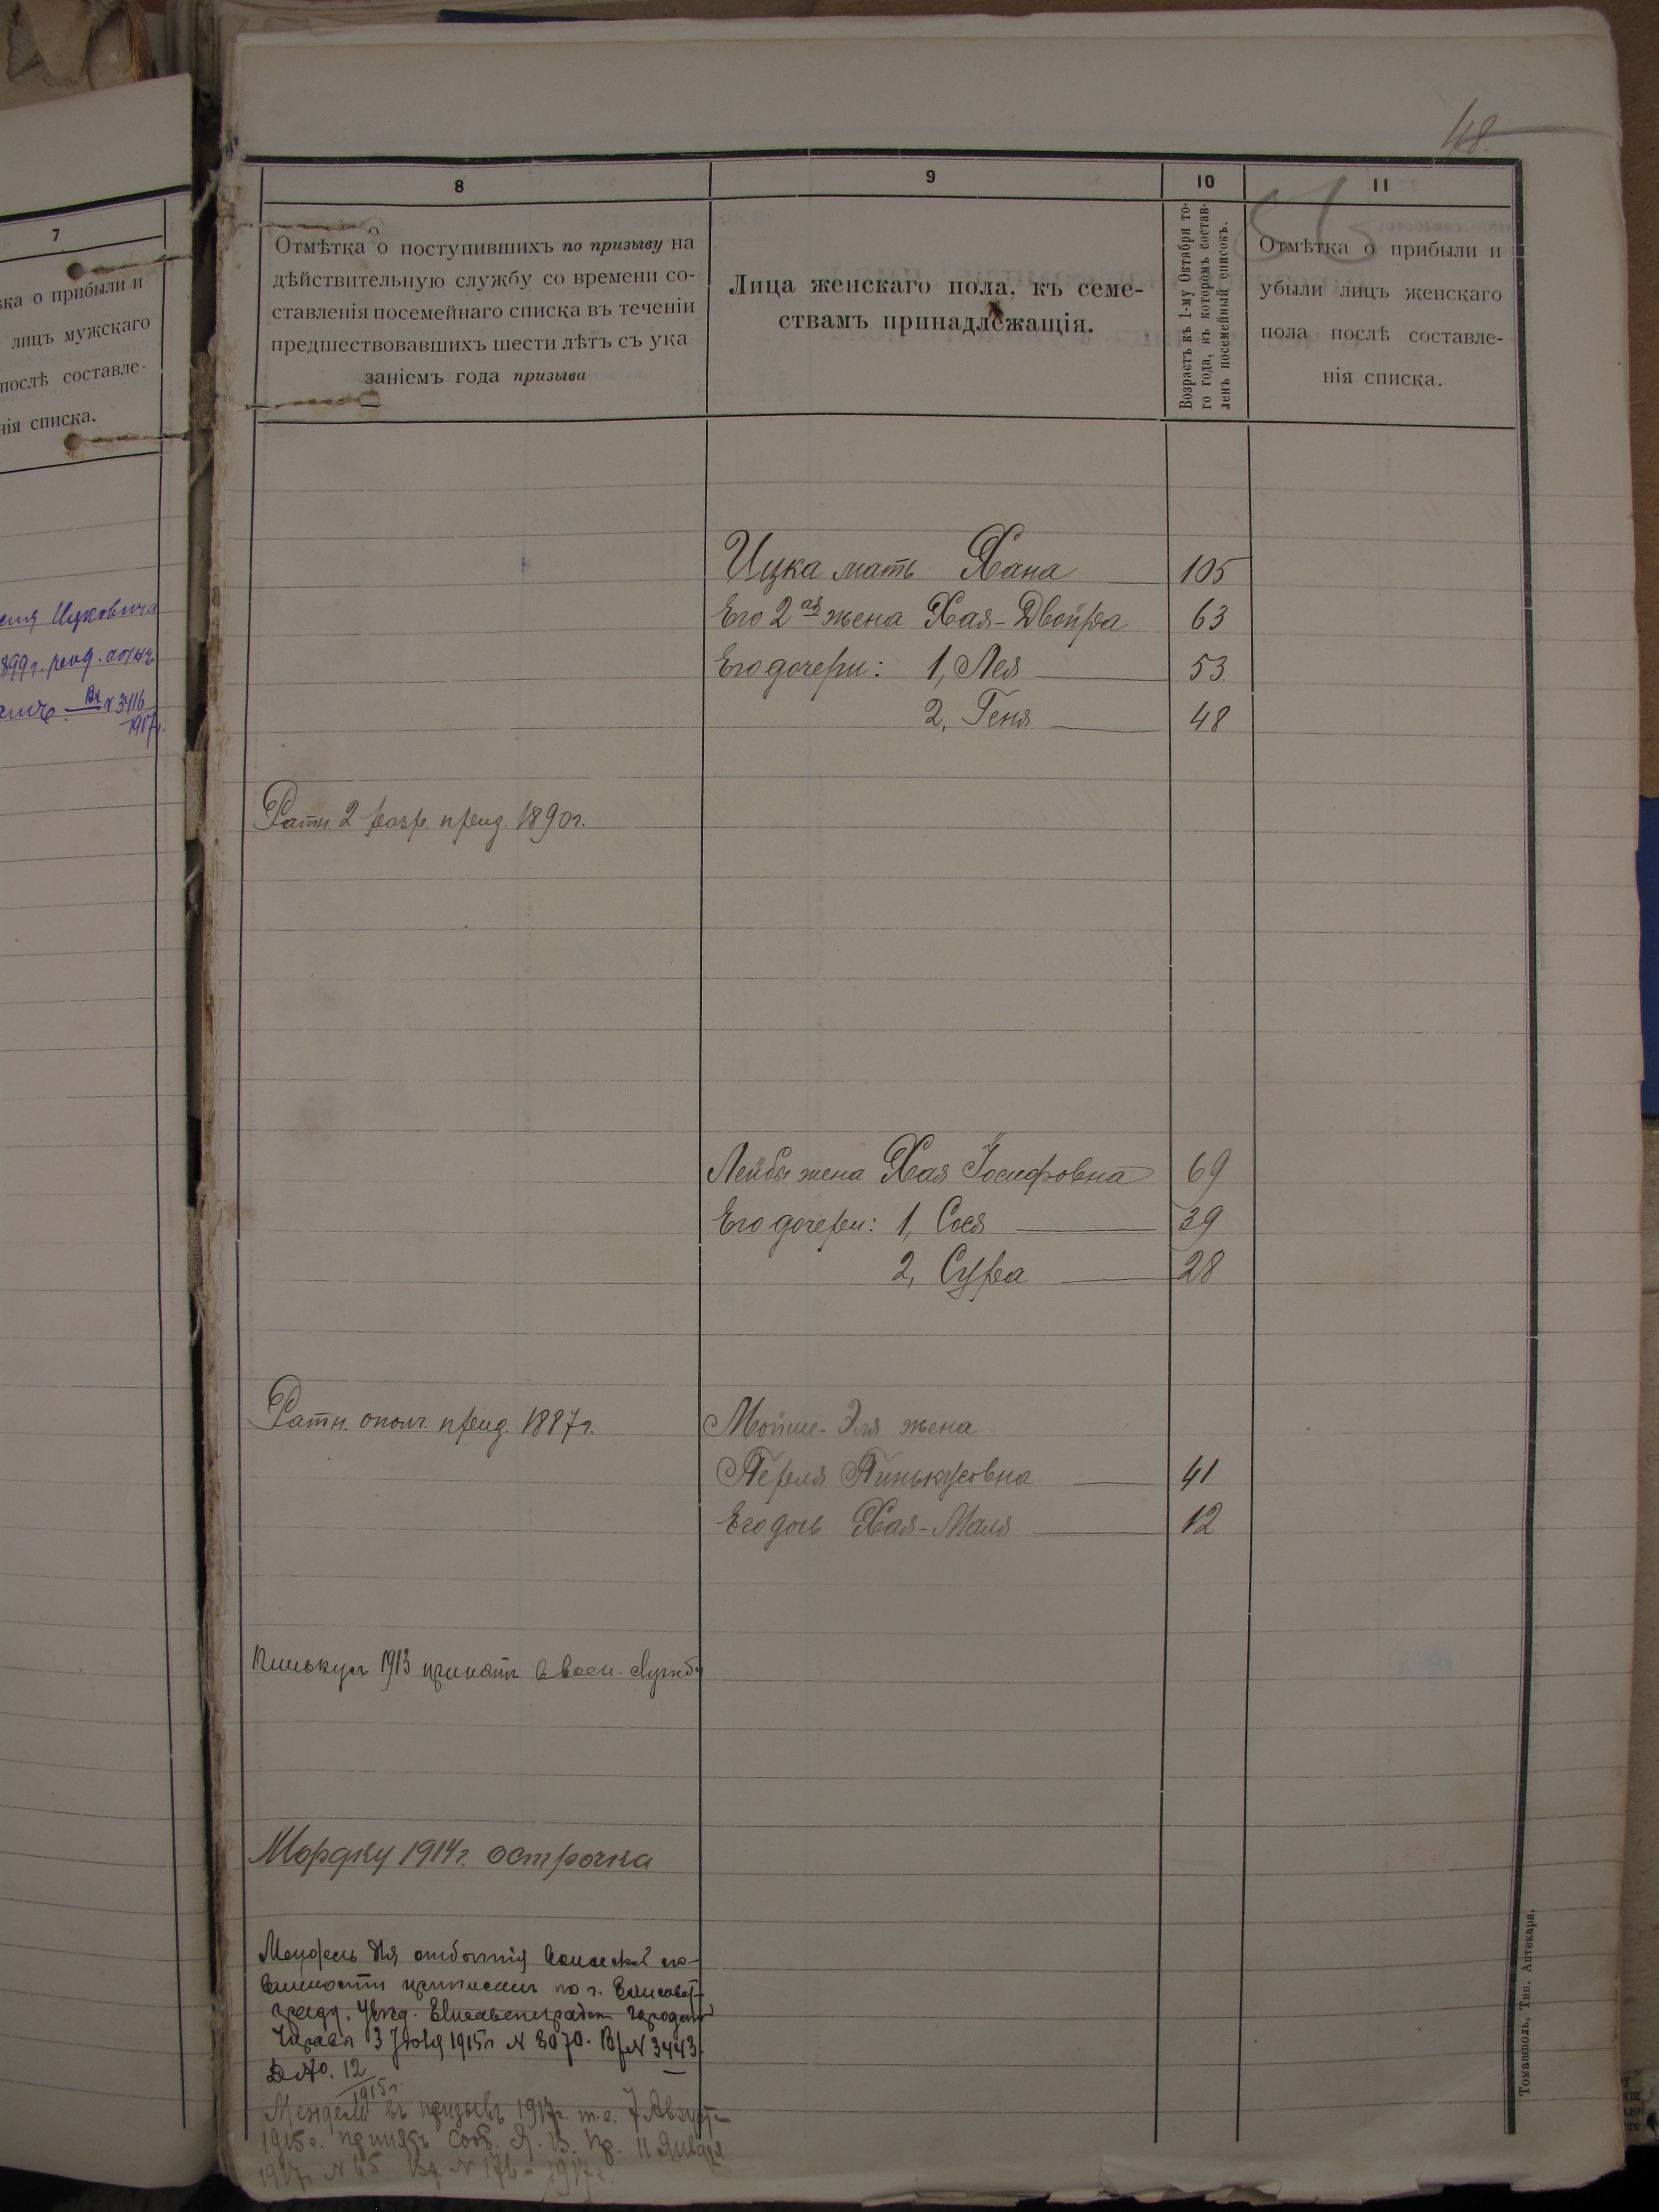 48.
7
ка о прибыли и
лицъ мужскаго
послѣ составле-
нія списка.
Ицковича
899 г.
Вх. N 3416
1917 г.
8
Отмѣтка о поступившихъ по призыву на
дѣйствительную службу со времени со-
ставленія посемейнаго списка въ теченіи
предшествовавшихъ шести лѣтъ съ ука
заніемъ года призыва
9
Лица женскаго пола, къ семе-
ствамъ принадлежащія.
10
Возрастъ къ 1-му Октября то-
го года, къ которомъ состав-
ленъ посемейный списокъ.
11
Отмѣтка о прибыли и
убыли лицъ женскаго
пола послѣ составле-
нія списка.
Ицка мать Хана 105
Его 2ая жена Хая-Двойра 63
Его дочери: 1, Лея 53.
2, Геня 48
Ратн. 2 разр. призд. 1890 г.
Лейбы жена Хая Іосифовна 69
Его дочери: 1, Сося 39
2, Сура 28
Ратн. ополч. призд. 1887 г.
Мойше-Эля жена
Перля Пинькусовна 41
Его дочь Хая-Маля 12
Пинькусъ 1913 принятъ в воен. службу
Мордку 1914 г. острочка
Мендель для отбытія воинской по-
винности приписанъ по г. Елисавет-
граду. Увѣд. Елисаветградск. Городск.
Управы 3 Іюля 1915 г N 8070. Вх N 3443.
Д No. 12
1915 г.
Мендель въ призывъ 1917 г. т.е. 7 Август
1915 г. принятъ Сооб. Я. В. Пр. 11 Января
1917 г N 65 Вх N 176 - 1917 г.
Томашполь, Тип. Аптекаря.